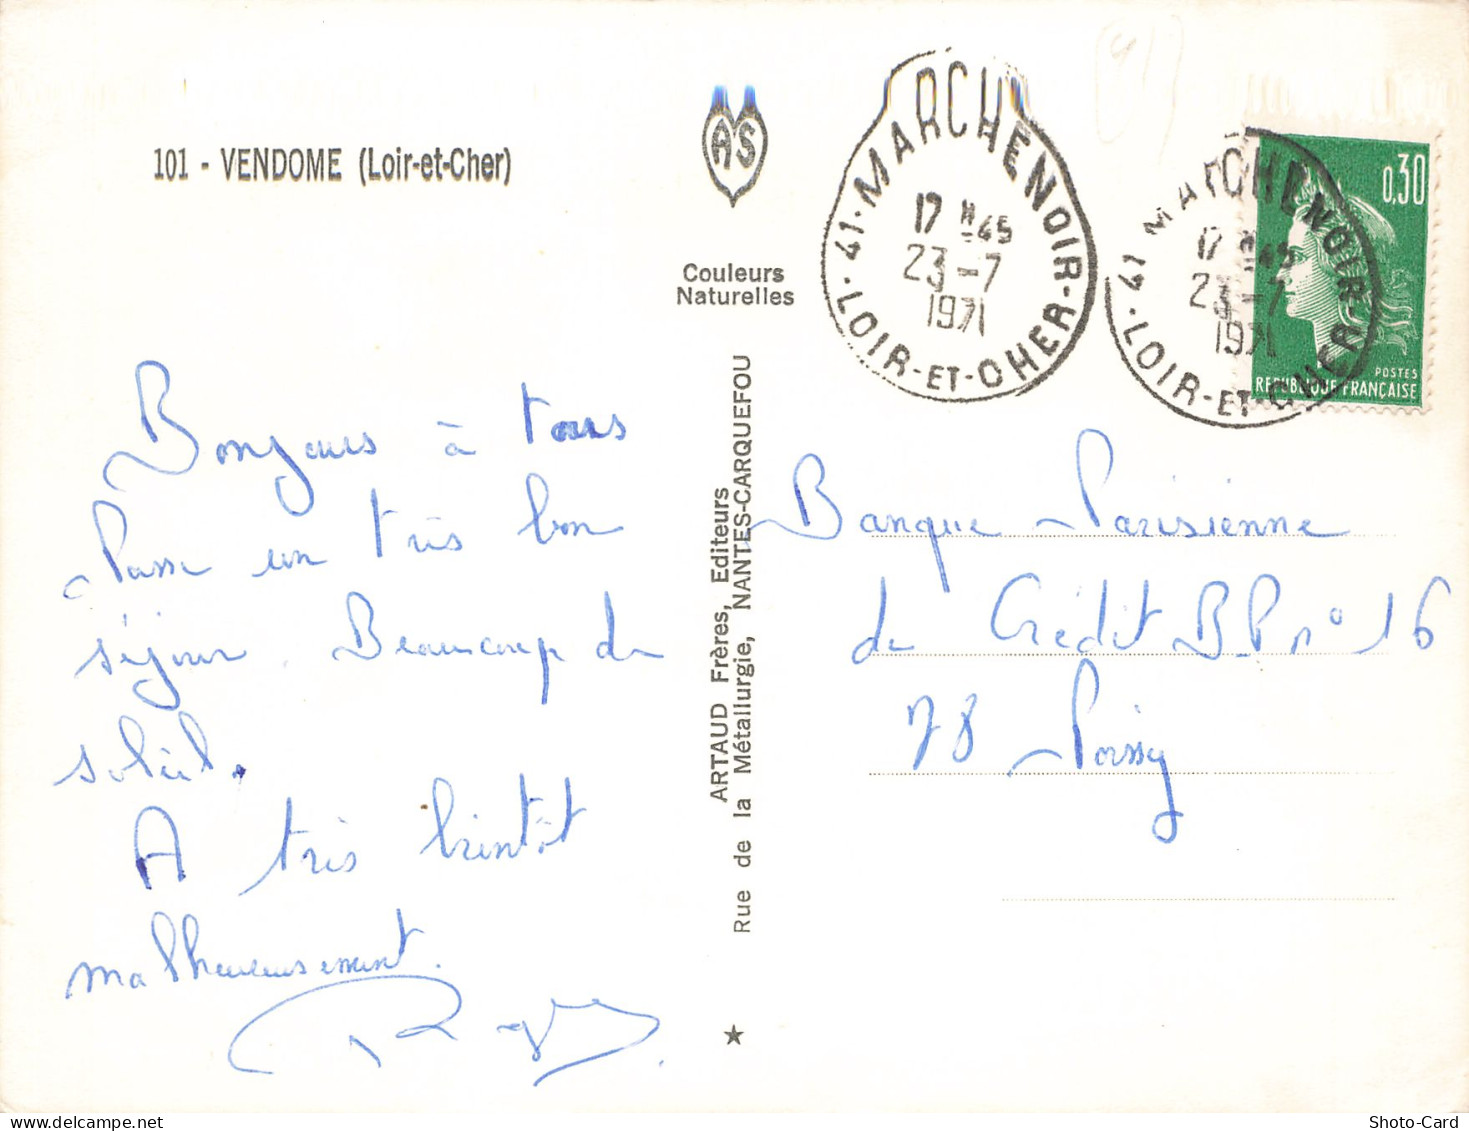 101 - VENDOME (Loir-et-Cher)
AS
Couleurs
Naturelles
ARTAUD Frères, Editeurs
Rue de la Métallurgie, NANTES-CARQUEFOU
41 · MARCHENOIR
17 H 45
23 - 7
1971
LOIR-ET-CHER
41 MARCHENOIR
17 H 45
23 - 7
1971
LOIR-ET-CHER
0,30
POSTES
REPUBLIQUE FRANÇAISE
Bonjours à tous
Passe un très bon
séjour. Beaucoup de
soleil.
A très bientôt
malheureusement.
Banque Parisienne
de Crédit B.P n° 16
78 Poissy
Shoto-Card